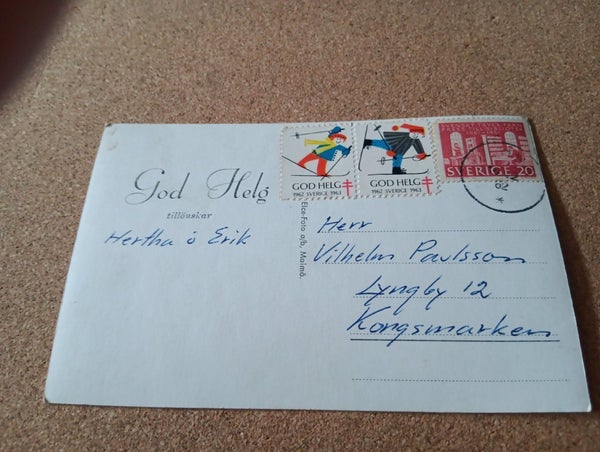 God Helg
tillönskar
Hertha o Erik
GOD HELG
1962 SVERIGE 1963
GOD HELG
1962 SVERIGE 1963
SVERIGE 20
Elce-Foto a/b, Malmö.
Herr
Vilhelm Paulsson
Lyngby 12
Kongsmarken